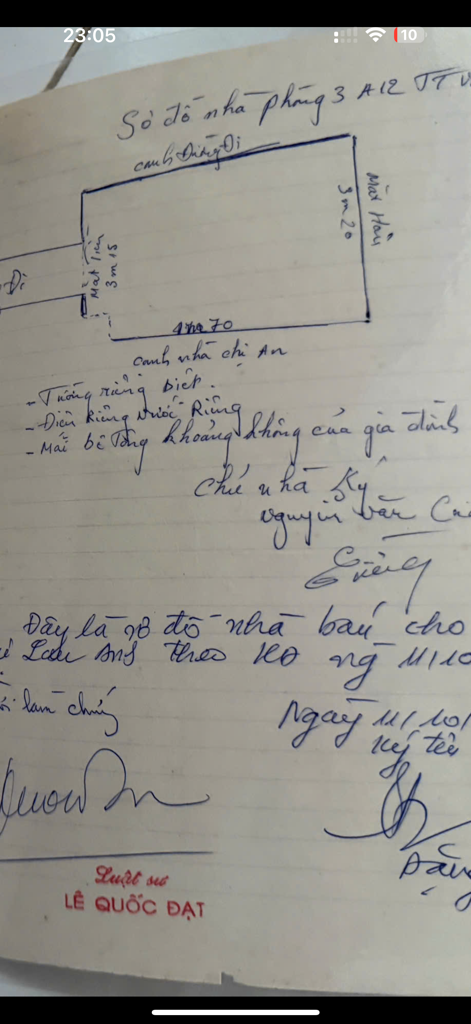 23:05
10
Sơ đồ nhà phòng 3 A12 TT
cạnh Đường Đi
Mặt Hậu
3m20
Đi
Mặt Tiền
3m15
4m70
cạnh nhà chị An
- Tường riêng biệt.
- Điện Riêng Nước Riêng
- Mái bê tông khoảng không của gia đình
Chủ nhà Ký
Nguyễn Văn
Đây là sơ đồ nhà bán cho
theo HĐ ng 11/10
làm chứng
Ngày 11/10/
Ký tên
Luật sư
LÊ QUỐC ĐẠT